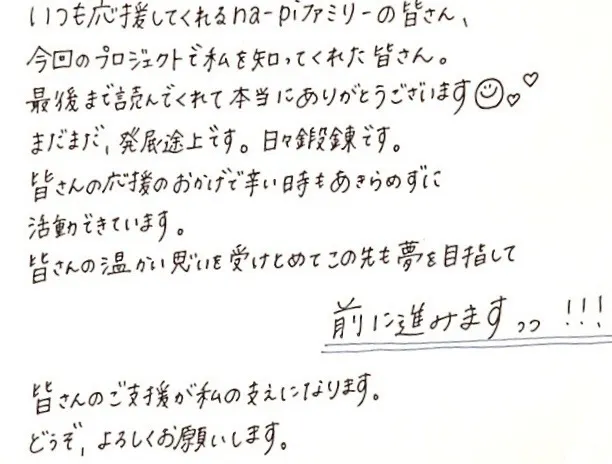 いつも応援してくれるna-piファミリーの皆さん、
今回のプロジェクトで私を知ってくれた皆さん。
最後まで読んでくれて本当にありがとうございます
まだまだ、発展途上です。日々鍛錬です。
皆さんの応援のおかげで辛い時もあきらめずに
活動できています。
皆さんの温かい思いを受けとめてこの先も夢を目指して
前に進みますっっ!!!
皆さんのご支援が私の支えになります。
どうぞ、よろしくお願いします。